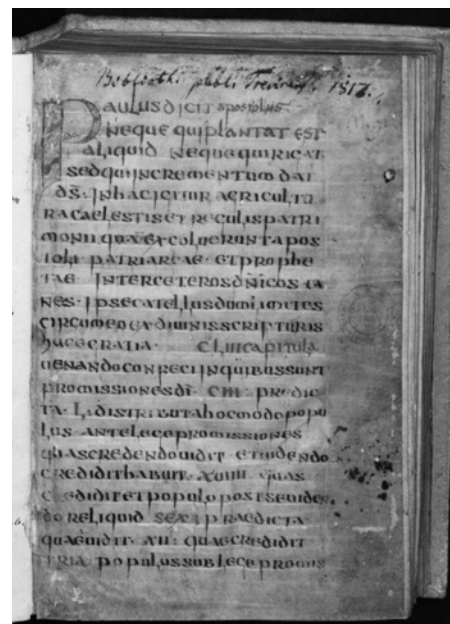 Bibliothec. publ. Trevirens. 1817.
PAULUS DICIT apostolus
NEQUE QUI PLANTAT EST
ALIQUID NEQUE QUI RIGAT
SED QUI INCREMENTUM DAT
DS: IN HAC IGITUR AGRICULTU
RA CAELESTIS ET REGULIS PATRI
MONII QUA EXCOLUERUNT APOS
TOLI PATRIARCAE ET PROPHE
TAE INTER CETEROS DNICOS CA
NES IPSE CATELLUS DOMI LIMITES
CIRCUMEO EX DIUINIS SCRIPTURIS
HUIC GRATIA CLIII CAPITULA
UENANDO CONREGI IN QUIBUS SUNT
PROMISSIONES DI CIII: PREDIC
TA L: DISTRIBUTA HOC MODO POPU
LUS ANTE LEGE PROMISSIONES
QUAS CREDENDO UIDIT ET UIDENDO
CREDIDIT HABUIT XUIIII QUAS
CREDIDIT ET POPULO POST SE UIDEN
DO RELIQUID SEX: PRAEDICTA
QUAE UIDIT XII: QUAE CREDIDIT
TRIA POPULUS SUB LEGE PROMIS